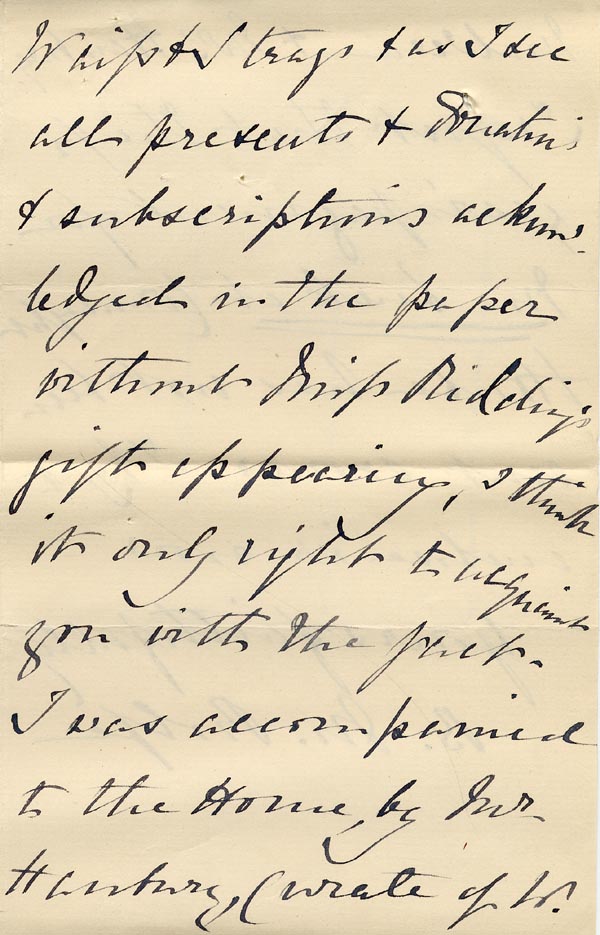 Waifs & Strays & as I see
all presents & donations
& subscriptions acknow-
ledged in the paper
without Miss Ridding's
gift appearing, I think
it only right to acquaint
you with the fact.
I was accompanied
to the Home, by Mr
Hanbury, Curate of W.